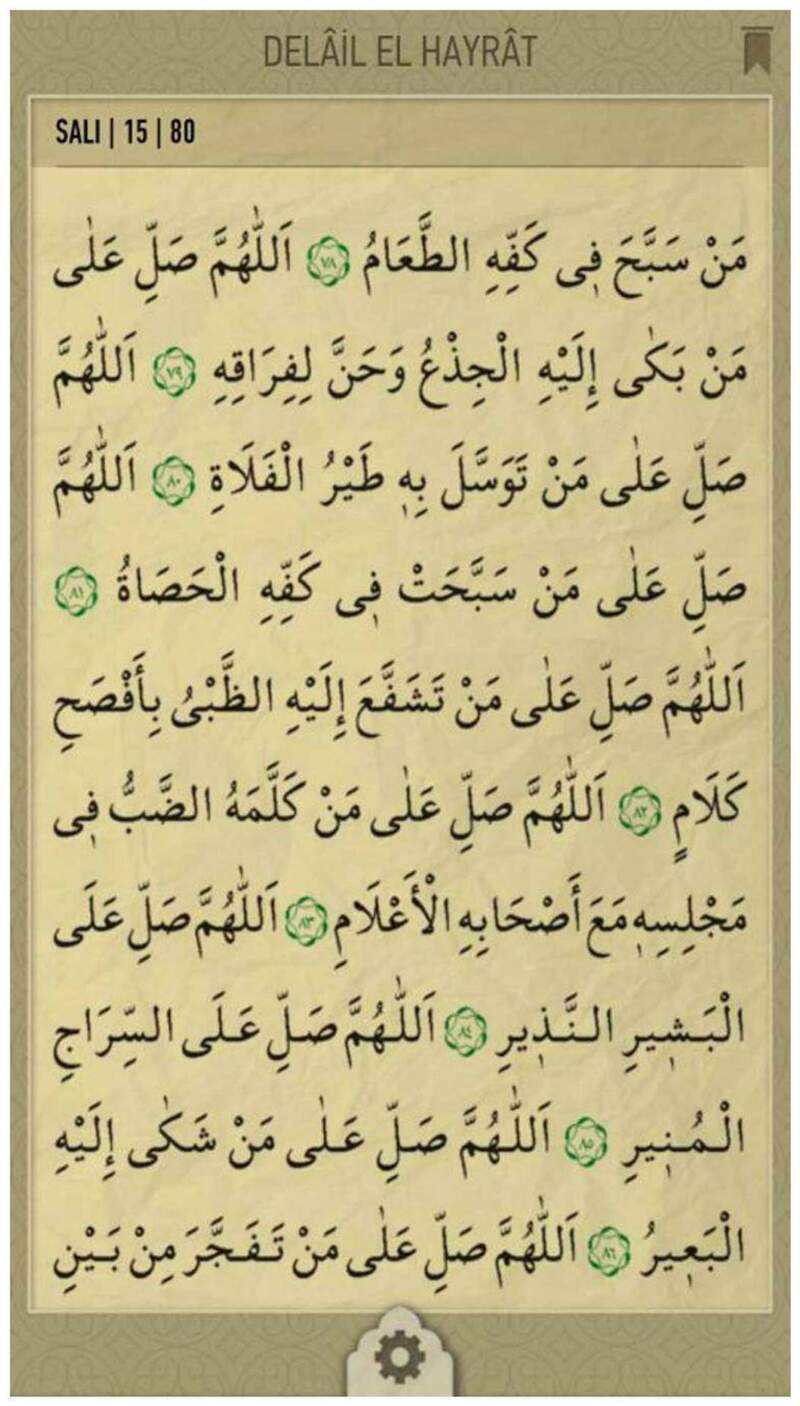 DELÂİL EL HAYRÂT
SALI | 15 | 80
مَنْ سَبَّحَ فٖى كَفِّهِ الطَّعَامُ ٧٨ اَللّٰهُمَّ صَلِّ عَلٰى
مَنْ بَكٰى إِلَيْهِ الْجِذْعُ وَحَنَّ لِفِرَاقِهِ ٧٩ اَللّٰهُمَّ
صَلِّ عَلٰى مَنْ تَوَسَّلَ بِهٖ طَيْرُ الْفَلَاةِ ٨٠ اَللّٰهُمَّ
صَلِّ عَلٰى مَنْ سَبَّحَتْ فٖى كَفِّهِ الْحَصَاةُ ٨١
اَللّٰهُمَّ صَلِّ عَلٰى مَنْ تَشَفَّعَ إِلَيْهِ الظَّبْىُ بِأَفْصَحِ
كَلَامٍ ٨٢ اَللّٰهُمَّ صَلِّ عَلٰى مَنْ كَلَّمَهُ الضَّبُّ فٖى
مَجْلِسِهٖ مَعَ أَصْحَابِهِ الْأَعْلَامِ ٨٣ اَللّٰهُمَّ صَلِّ عَلَى
الْبَشٖيرِ النَّذٖيرِ ٨٤ اَللّٰهُمَّ صَلِّ عَلَى السِّرَاجِ
الْمُنٖيرِ ٨٥ اَللّٰهُمَّ صَلِّ عَلٰى مَنْ شَكٰى إِلَيْهِ
الْبَعٖيرُ ٨٦ اَللّٰهُمَّ صَلِّ عَلٰى مَنْ تَفَجَّرَ مِنْ بَيْنِ